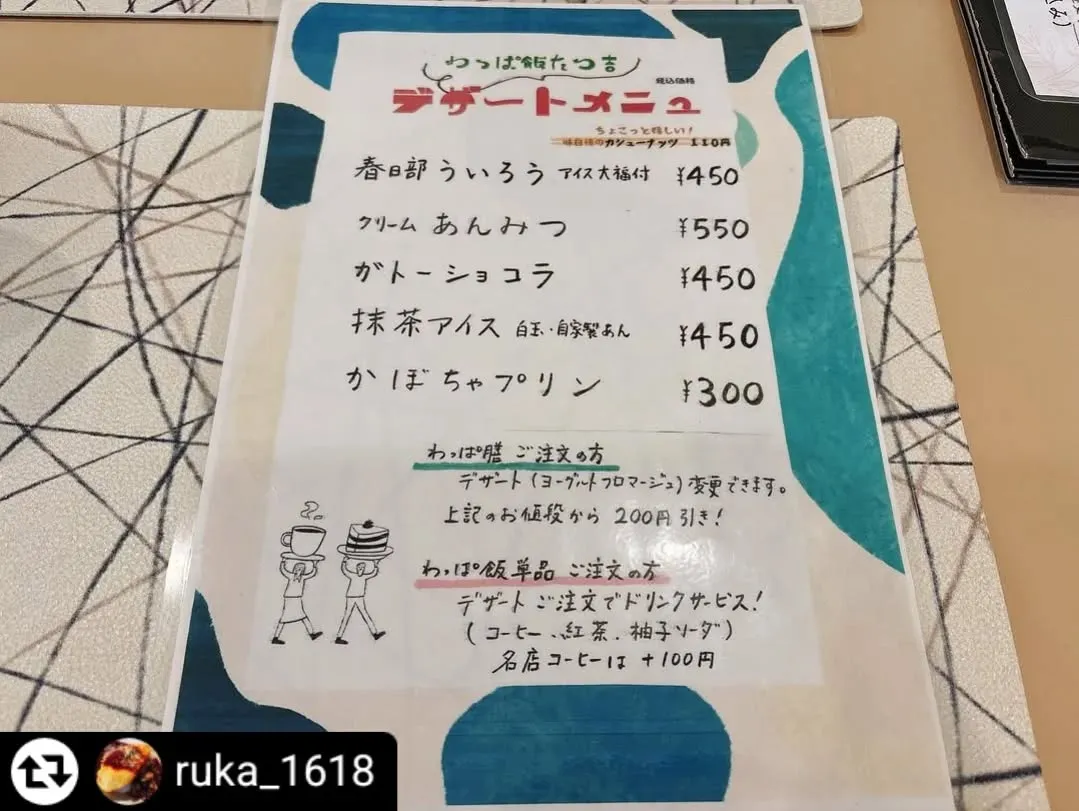 わっぱ飯たつ吉
税込価格
デザートメニュー
ちょこっと嬉しい!
カシューナッツ 110円
春日部ういろう アイス大福付 ¥450
クリームあんみつ ¥550
ガトーショコラ ¥450
抹茶アイス 白玉・自家製あん ¥450
かぼちゃプリン ¥300
わっぱ膳 ご注文の方
デザート(ヨーグルトフロマージュ)変更できます。
上記のお値段から 200円引き!
わっぱ飯単品 ご注文の方
デザートご注文でドリンクサービス!
(コーヒー、紅茶、柚子ソーダ)
名店コーヒーは +100円
ruka_1618